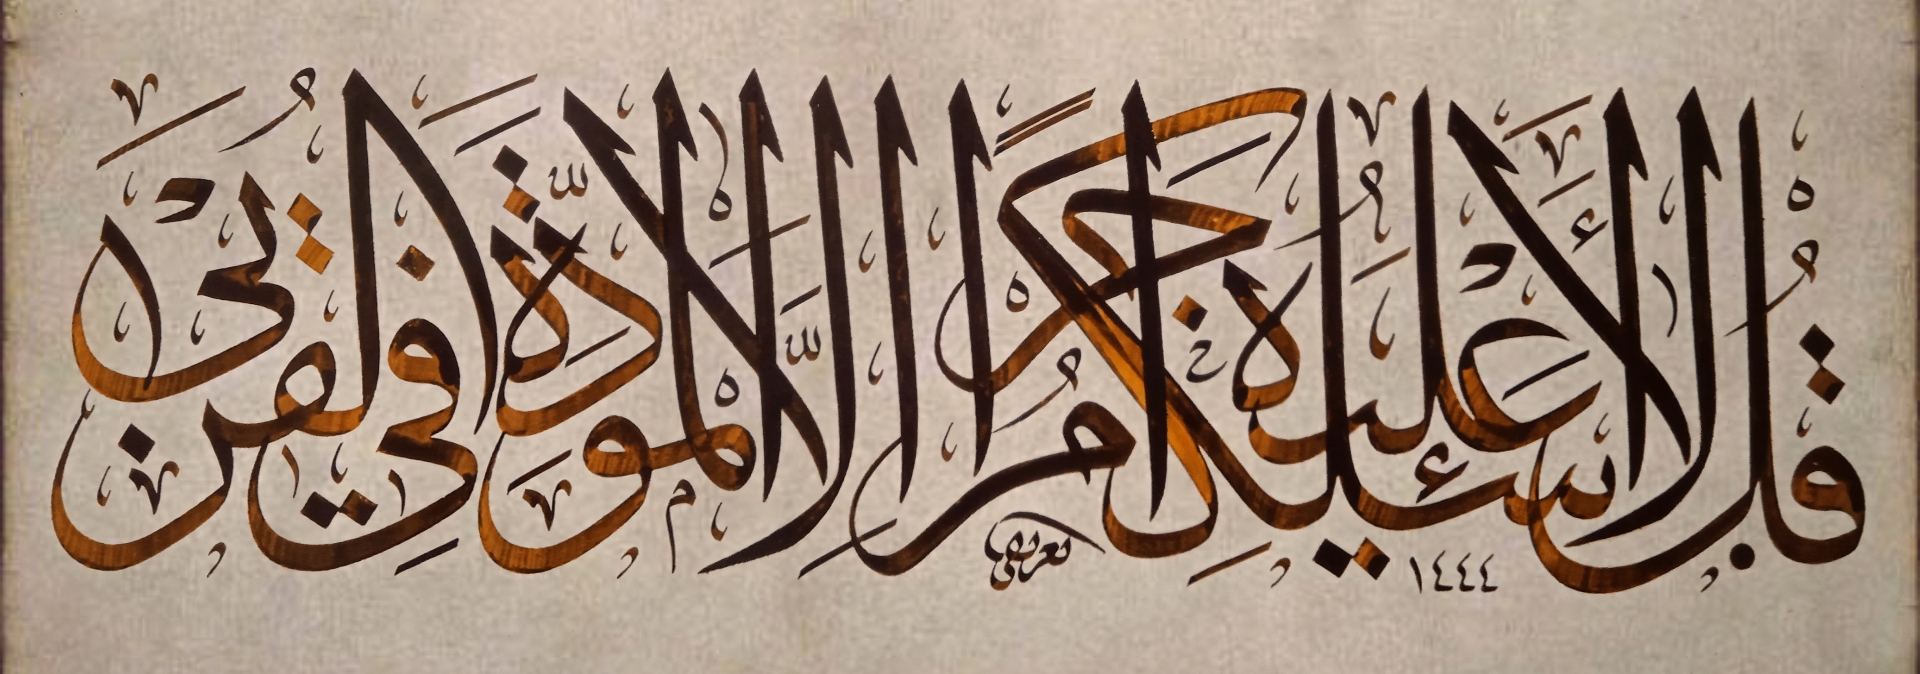 قُل لَّا أَسْأَلُكُمْ عَلَيْهِ أَجْرًا إِلَّا الْمَوَدَّةَ فِي الْقُرْبَىٰ
١٤٤٤